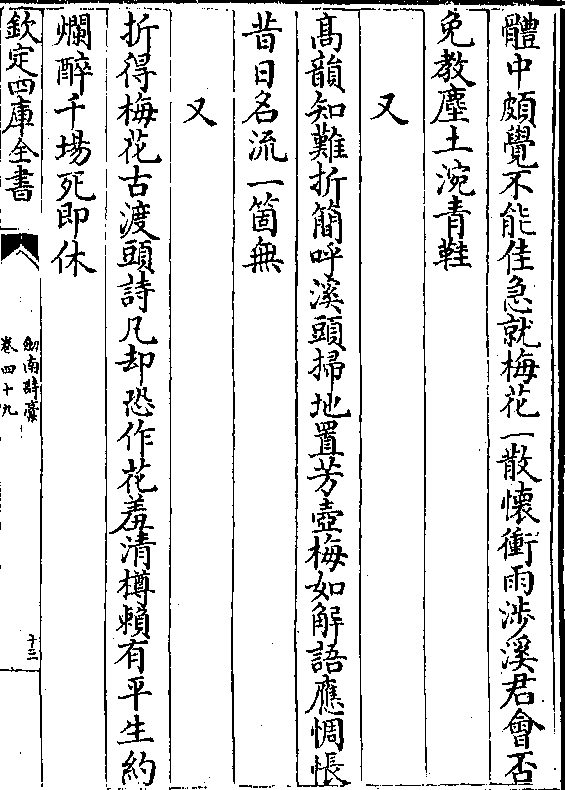 體中頗覺不能佳急就梅花一散懐衝雨涉溪君會否
免教塵土涴青鞋
又
髙韻知難折簡呼溪頭掃地置芳壺梅如解語應惆悵
昔日名流一箇無
又
折得梅花古渡頭詩凡却恐作花羞清樽賴有平生約
爛醉千塲死即休
欽定四庫全書
劒南詩藁
卷四十九
十三